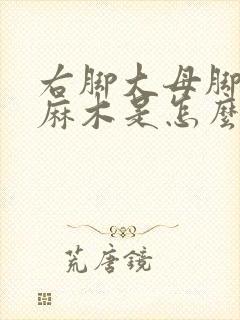 右脚大母脚
麻木是怎麽
荒唐镜